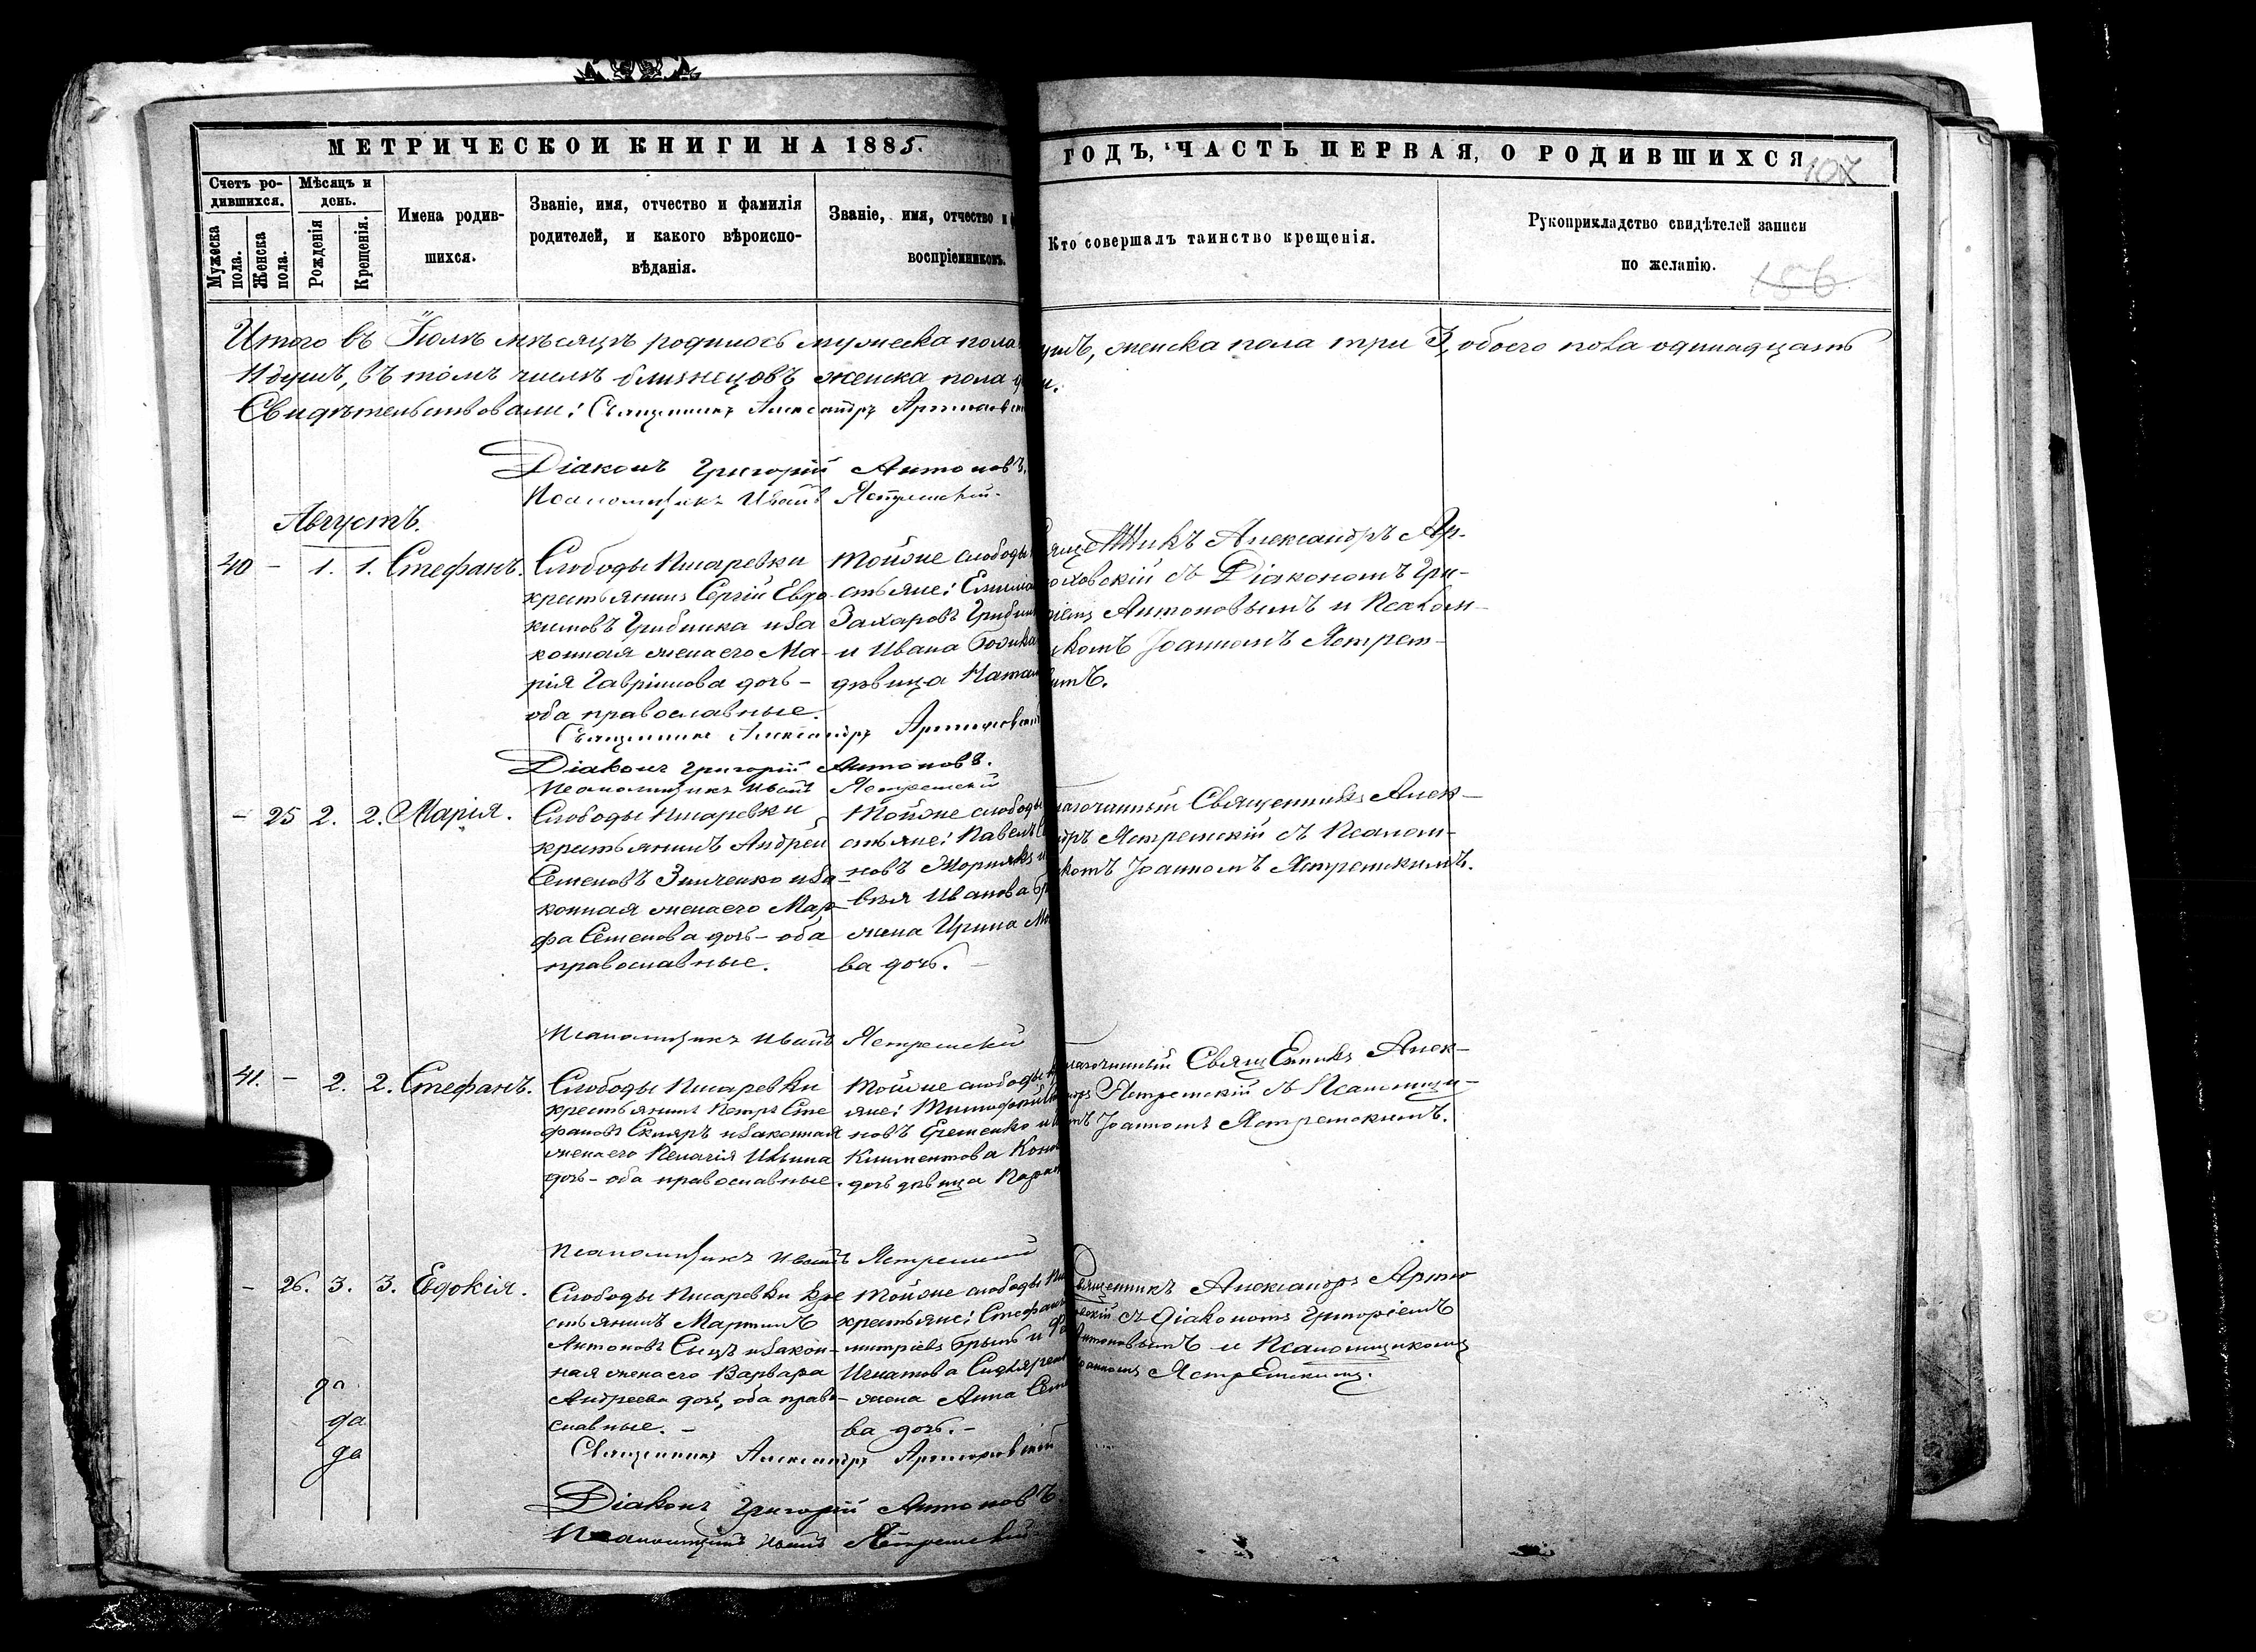 МЕТРИЧЕСКОЙ КНИГИ НА 1885.
ГОДЪ, ЧАСТЬ ПЕРВАЯ, О РОДИВШИХСЯ
107
Счетъ ро-
дившихся.
Мѣсяцъ и
день.
Мужеска
пола.
Женска
пола.
Рожденія
Крещенія.
Имена родив-
шихся.
Званіе, имя, отчество и фамилія
родителей, и какого вѣроиспо-
вѣданія.
Званіе, имя, отчество и ф
воспріемниковъ.
Кто совершалъ таинство крещенія.
Рукоприкладство свидѣтелей записи
по желанію.
156
Итого въ Іюлѣ мѣсяцѣ родилось мужеска пола
женска пола три 3, обоего пола одинадцать
11 душъ, въ томъ числѣ близнецовъ женска пола
Свидѣтельствовали: Священникъ Александръ
Діаконъ Григорій Антоновъ.
Псаломщикъ Иванъ Ястремскій.
Августъ.
40 - 1. 1. Стефанъ.
Слободы Писаревки
крестьянинъ Сергій Евдо-
кимовъ Грибинка и за
конная жена его Ма-
рія Гавріилова дочь -
оба православные.
Тойже слободы
стьяне:
Захаровъ
и Ивана
дѣвица
Александръ Ар-
съ Діакономъ Гри-
Антоновымъ и Псалом-
Іоанномъ Ястрем-
Священникъ Александръ
Діаконъ Григорій Антоновъ.
Псаломщикъ Иванъ Ястремскій
- 25 2. 2. Марія.
Слободы Писаревки
крестьянинъ Андрей
Семеновъ Зинченко и за-
конная жена его Мар-
фа Семенова дочь - оба
православные.
Тойже слободы
стьяне: Павелъ
новъ
Иванова
жена Ирина
ва дочь. -
Священникъ Алек-
Ястремскій съ Псалом-
Іоанномъ Ястремскимъ.
Псаломщикъ Иванъ Ястремскій
41. - 2. 2. Стефанъ.
Слободы Писаревки
крестьянинъ Петръ Сте
фановъ Скляръ и законная
жена его Пелагія Ильина
дочь - оба православные.
Тойже слободы
яне: Тимофей
новъ Еременко и
Климентова
дочь дѣвица
Священникъ Алек-
Ястремскій съ Псаломщи-
Іоанномъ Ястремскимъ.
Псаломщикъ Иванъ Ястремскій
- 26. 3. 3. Евдокія.
Слободы Писаревки кре
стьянинъ Мартинъ
Антоновъ Сыцъ и закон-
ная жена его Варвара
Андреева дочь, оба право-
славные. -
Тойже слободы
крестьяне: Стефанъ
митріевъ и
Игнатова
жена Анна
ва дочь. -
Священникъ Александръ
съ Діакономъ Григоріемъ
Антоновымъ и Псаломщикомъ
Іоанномъ Ястремскимъ.
да
да
да
Священникъ Александръ
Діаконъ Григорій Антоновъ
Псаломщикъ Иванъ Ястремскій